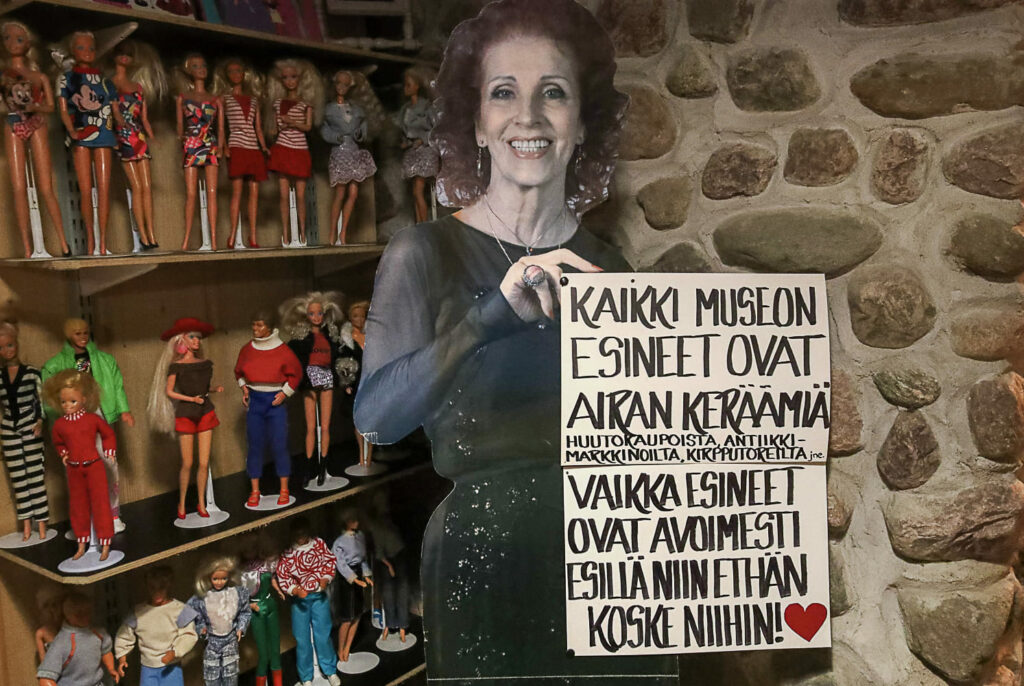 KAIKKI MUSEON
ESINEET OVAT
AIRAN KERÄÄMIÄ
HUUTOKAUPOISTA, ANTIIKKI-
MARKKINOILTA, KIRPPUTOREILTA jne.
VAIKKA ESINEET
OVAT AVOIMESTI
ESILLÄ NIIN ETHÄN
KOSKE NIIHIN!